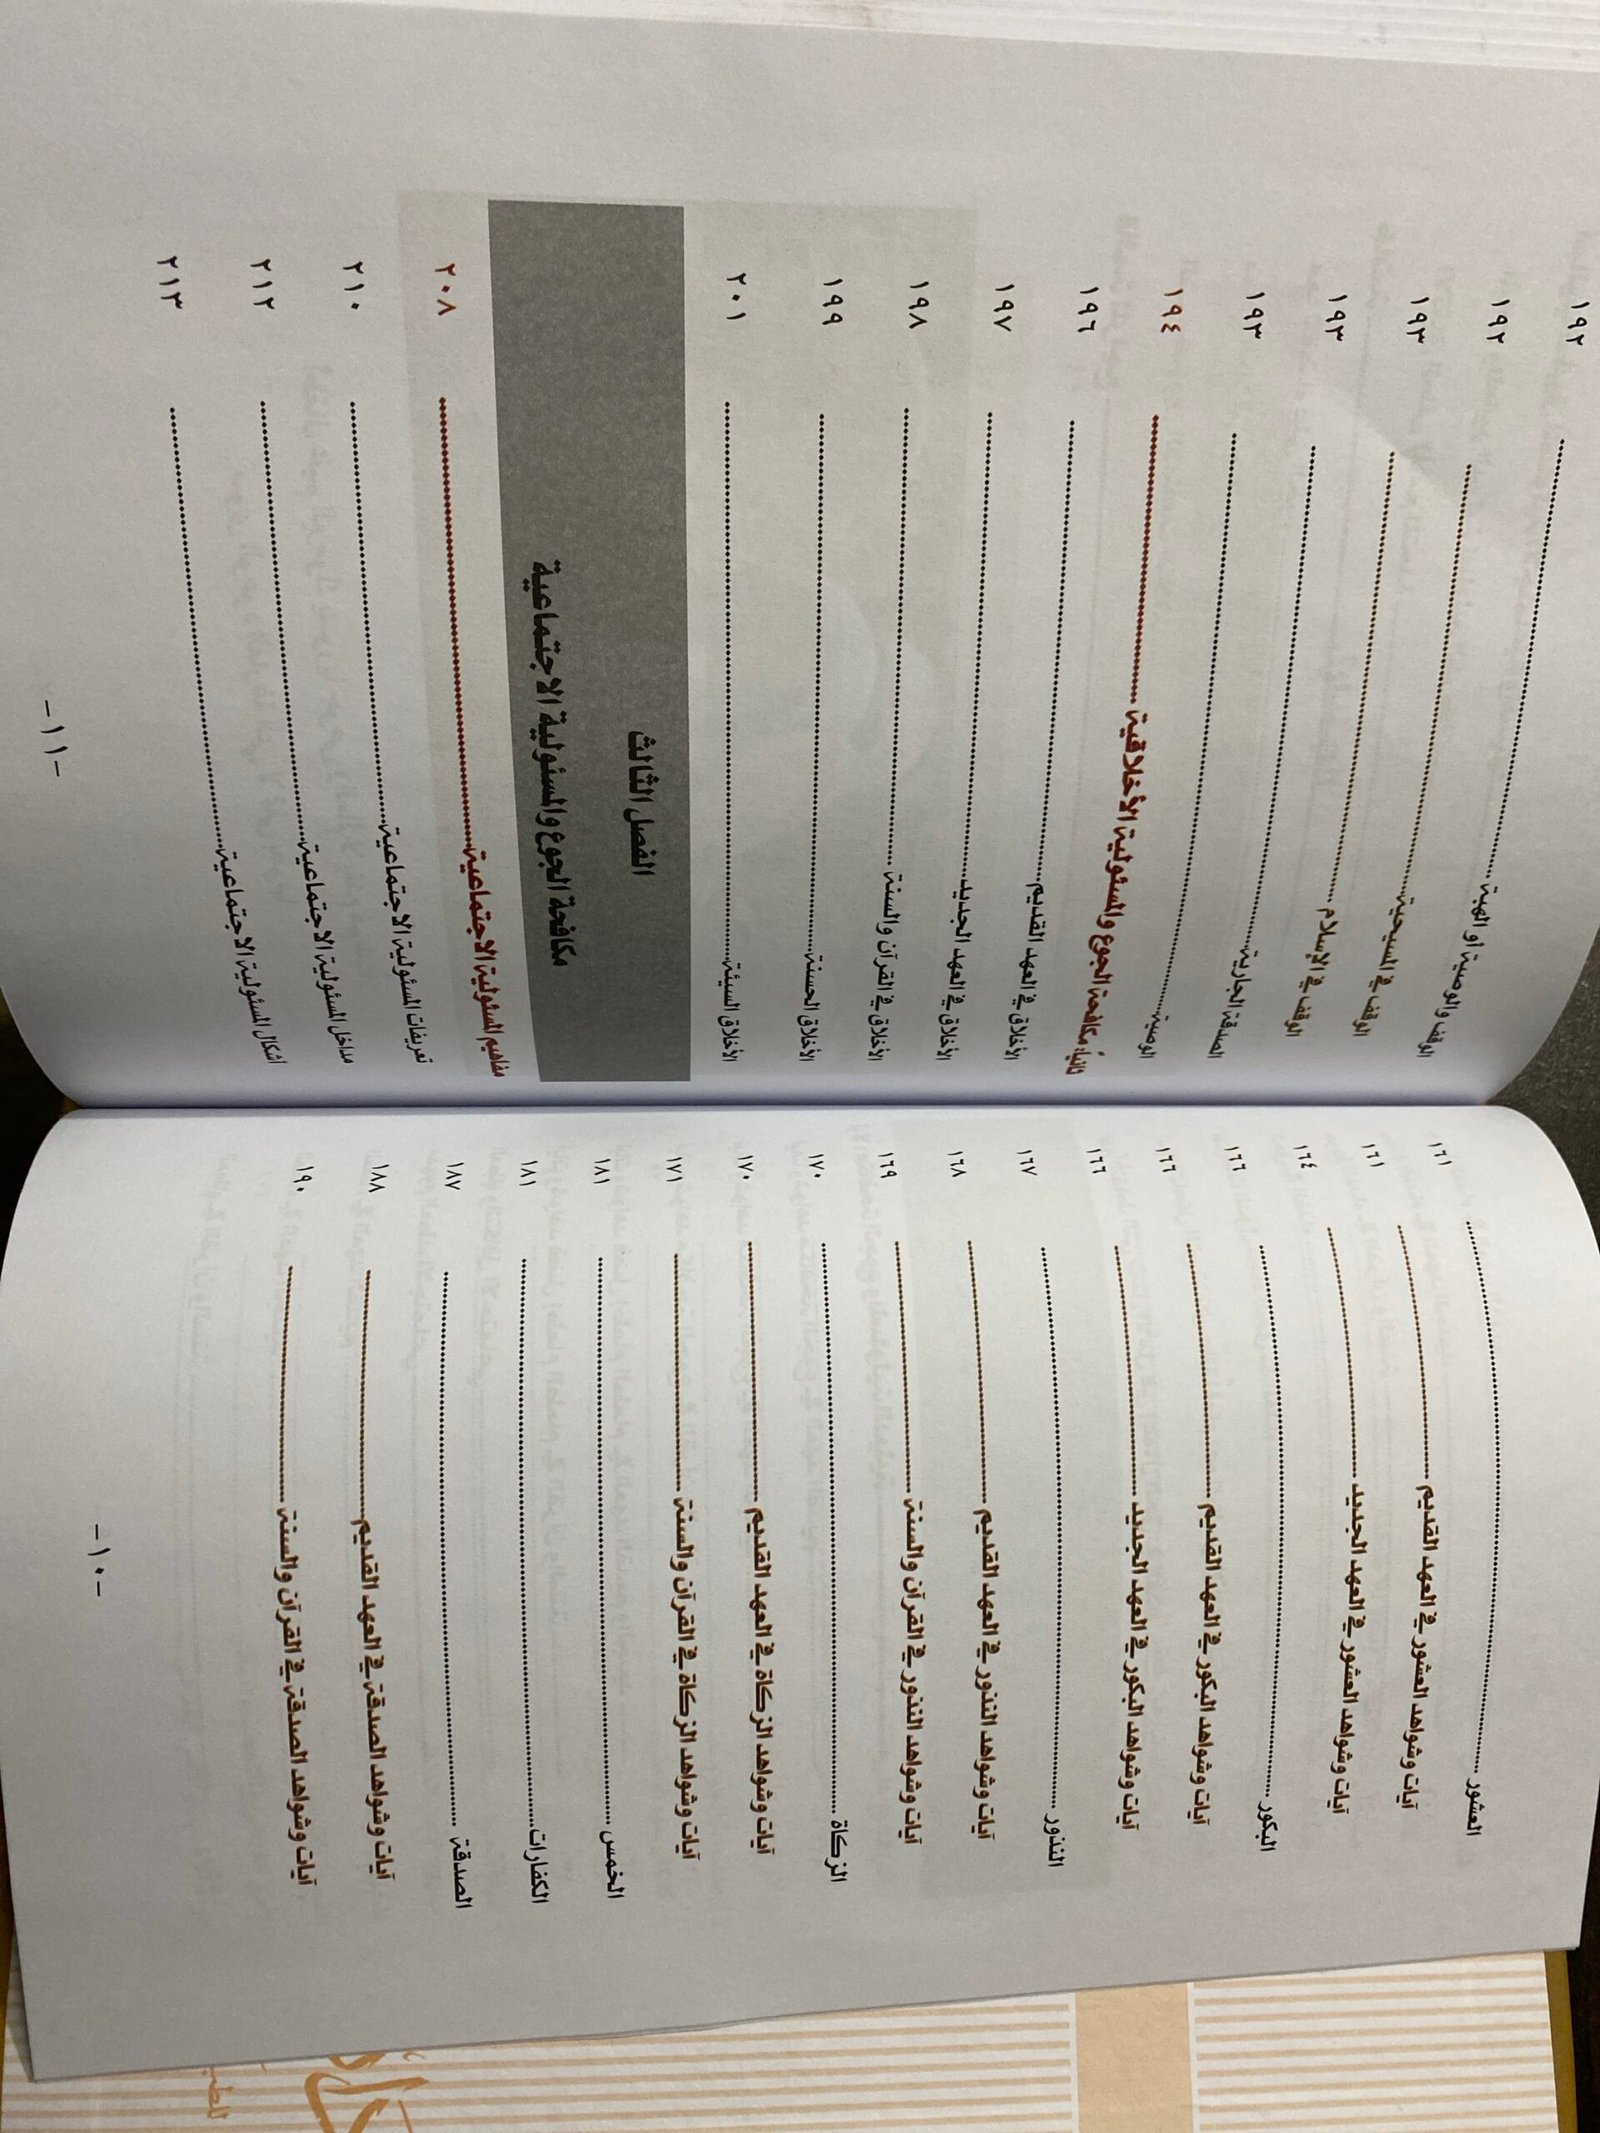 العشور ........ ١٦١
آيات وشواهد العشور في العهد القديم ........ ١٦١
آيات وشواهد العشور في العهد الجديد ........ ١٦٤
البكور ........ ١٦٦
آيات وشواهد البكور في العهد القديم ........ ١٦٦
آيات وشواهد البكور في العهد الجديد ........ ١٦٦
النذور ........ ١٦٧
آيات وشواهد النذور في العهد القديم ........ ١٦٨
آيات وشواهد النذور في القرآن والسنة ........ ١٦٩
الزكاة ........ ١٧٠
آيات وشواهد الزكاة في العهد القديم ........ ١٧٠
آيات وشواهد الزكاة في القرآن والسنة ........ ١٧١
الخمس ........ ١٨١
الكفارات ........ ١٨١
الصدقة ........ ١٨٧
آيات وشواهد الصدقة في العهد القديم ........ ١٨٨
آيات وشواهد الصدقة في القرآن والسنة ........ ١٩٠
-١٠-
........ ١٩٢
الوقف والوصية أو الهبة ........ ١٩٢
الوقف في المسيحية ........ ١٩٣
الوقف في الإسلام ........ ١٩٣
الصدقة الجارية ........ ١٩٣
الوصية ........ ١٩٤
ثانياً: مكافحة الجوع والمسئولية الأخلاقية ........ ١٩٤
الأخلاق في العهد القديم ........ ١٩٦
الأخلاق في العهد الجديد ........ ١٩٧
الأخلاق في القرآن والسنة ........ ١٩٨
الأخلاق الحسنة ........ ١٩٩
الأخلاق السيئة ........ ٢٠١
الفصل الثالث
مكافحة الجوع والمسئولية الاجتماعية
مفاهيم المسئولية الاجتماعية ........ ٢٠٨
تعريفات المسئولية الاجتماعية ........ ٢١٠
مداخل المسئولية الاجتماعية ........ ٢١٢
أشكال المسئولية الاجتماعية ........ ٢١٣
-١١-